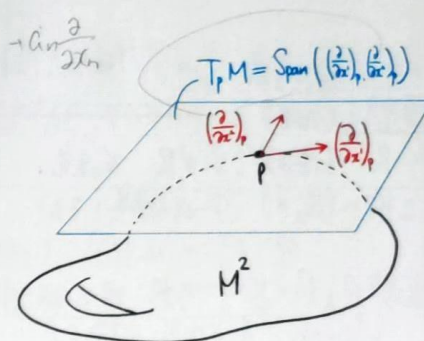 ∂/∂xₙ
TₚM = Span((∂/∂x¹)ₚ, (∂/∂x²)ₚ)
(∂/∂x²)ₚ
(∂/∂x¹)ₚ
P
M²